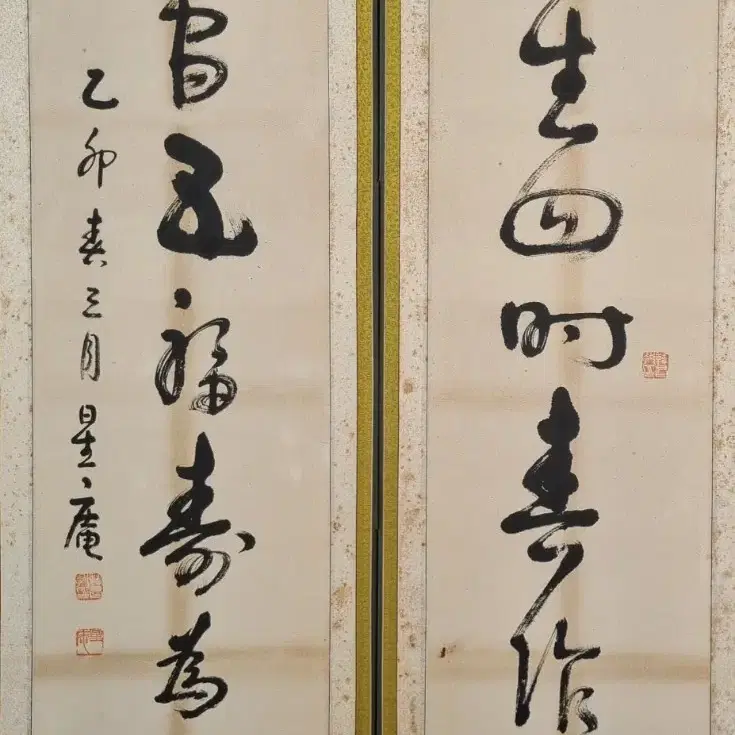 生四時春作
間五福壽為
乙卯春三月 星庵